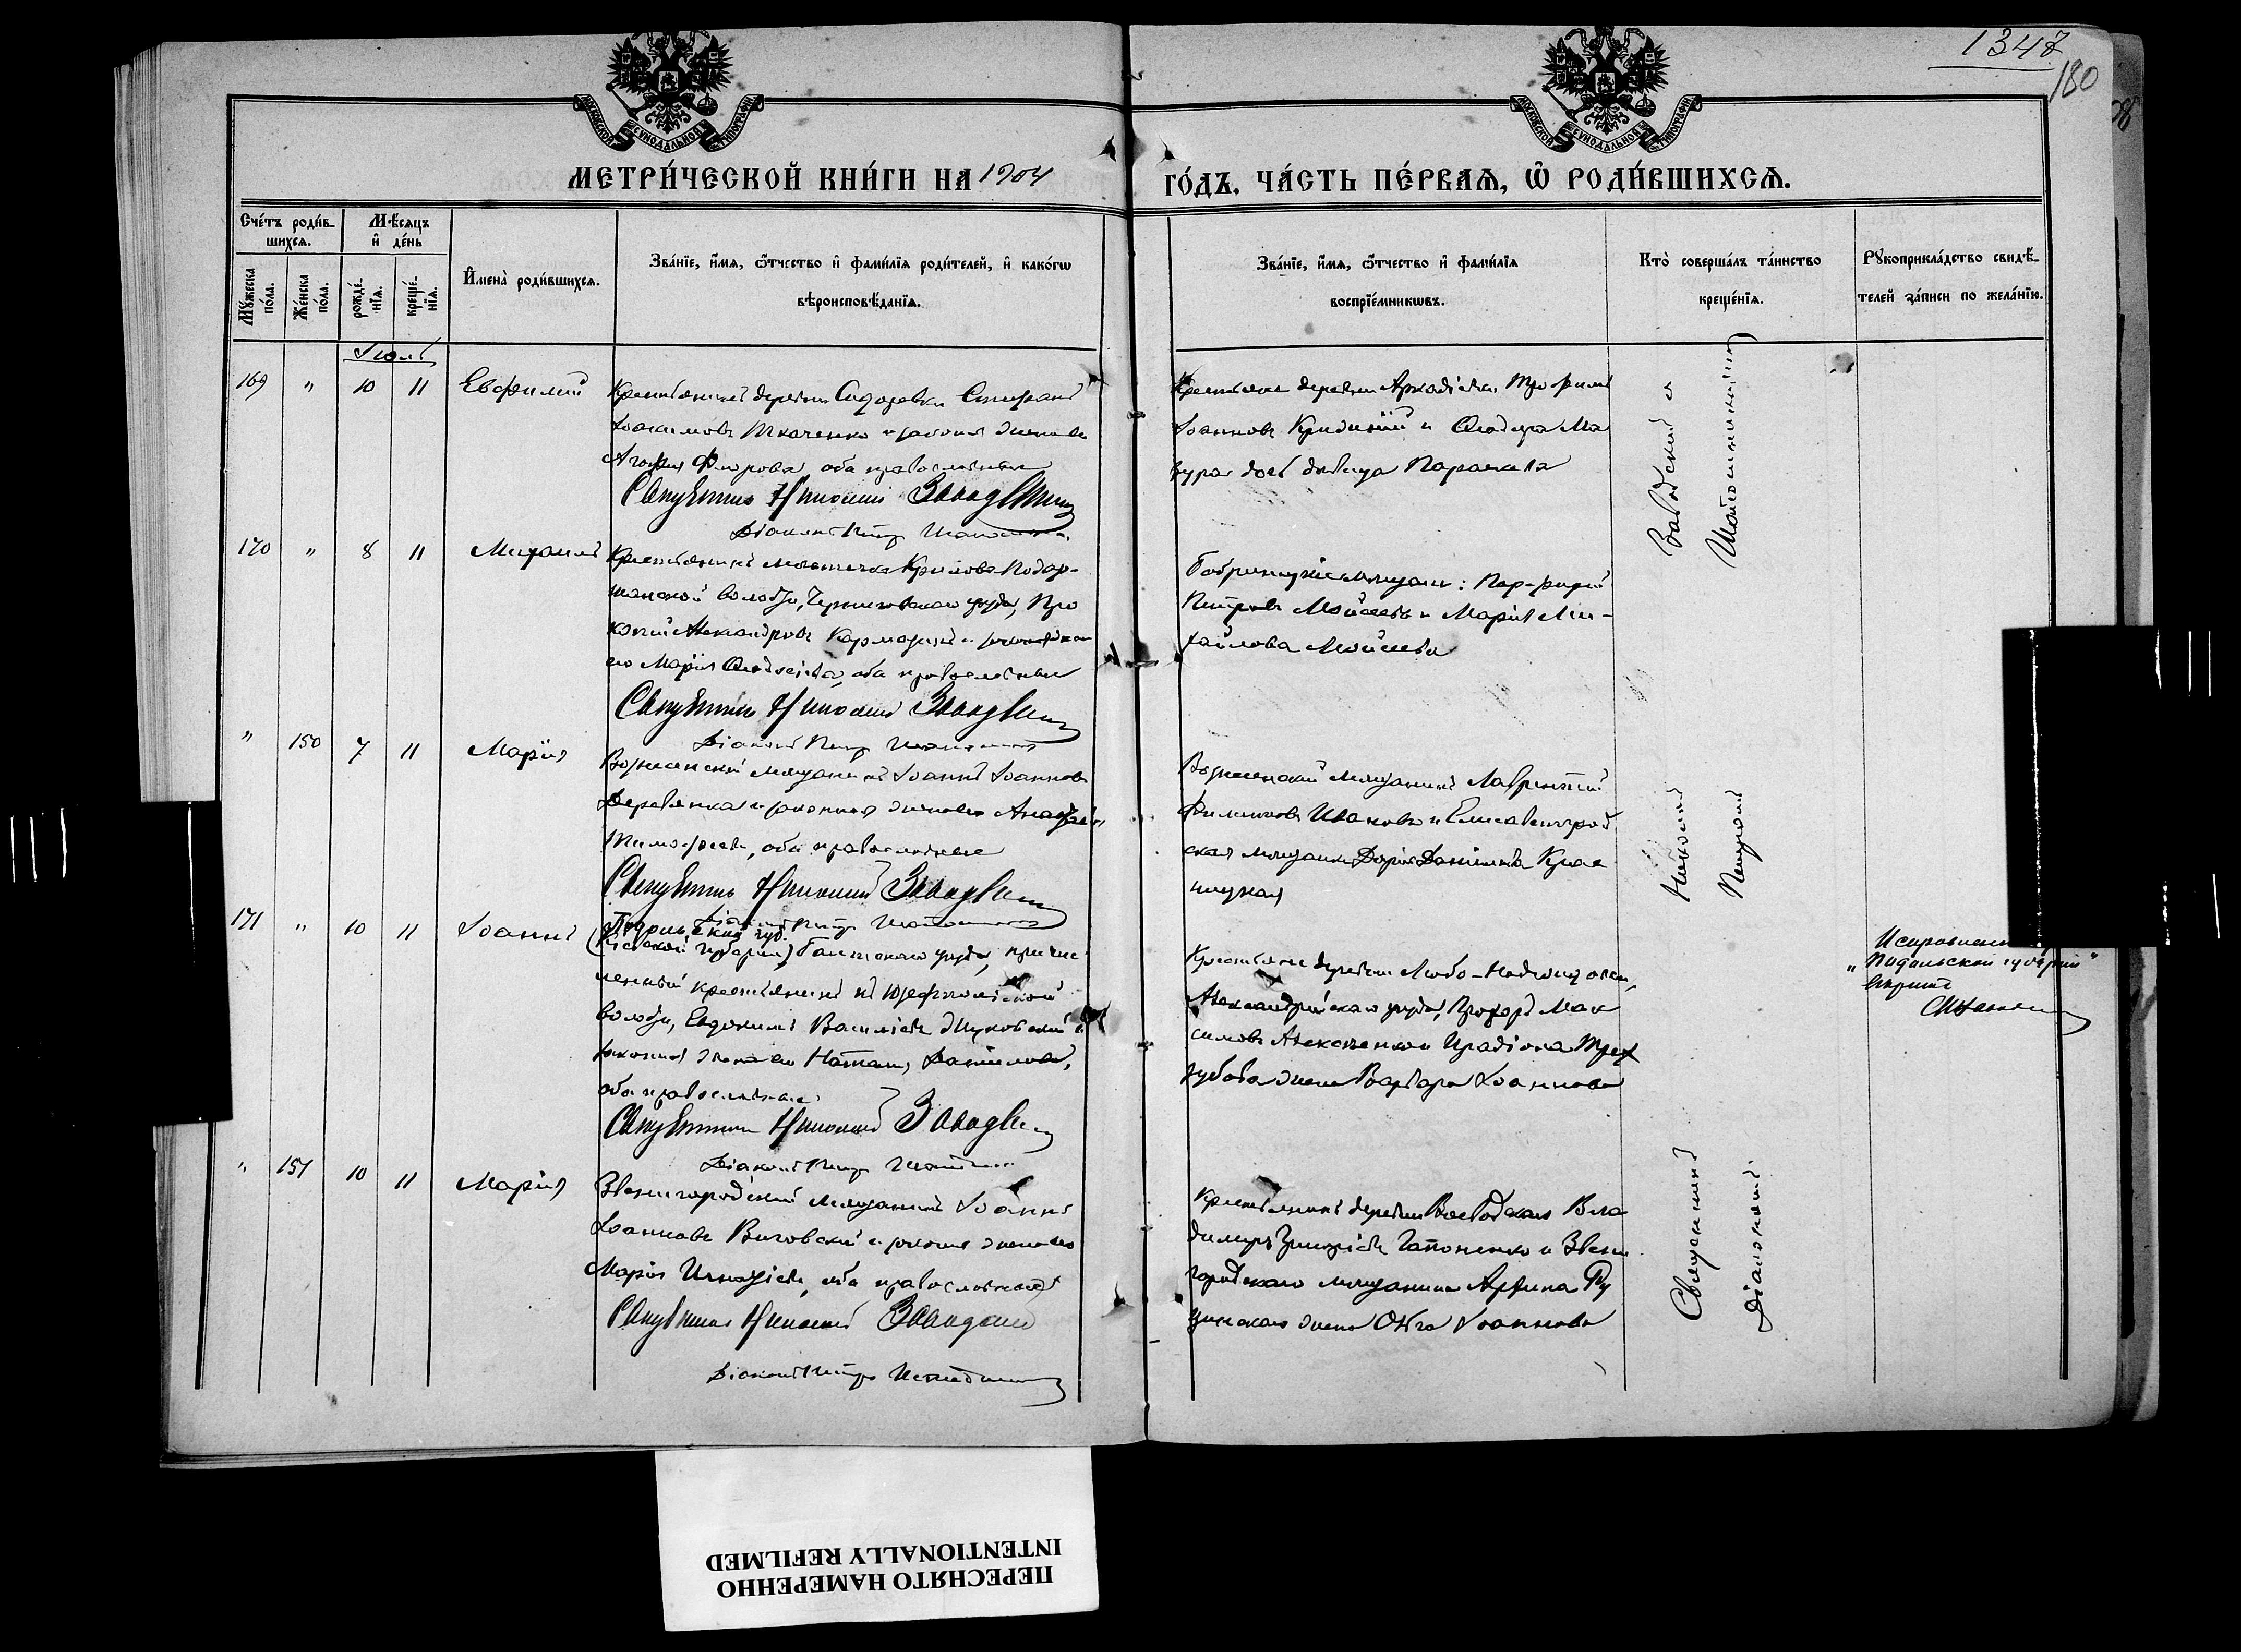 1347
180
МОСКОВСКОЙ СУНОДАЛЬНОЙ ТИПОГРАФІИ
МОСКОВСКОЙ СУНОДАЛЬНОЙ ТИПОГРАФІИ
МЕТРИ́ЧЕСКОЙ КНИ́ГИ НА 1904
ГО́ДЪ, ЧА́СТЬ ПЕ́РВАѦ, Ѡ҆ РОДИ́ВШИХСѦ.
Сче́тъ роди́в-
шихсѧ.
Мѣ́сѧцъ
и҆ де́нь
Мꙋ́жеска по́ла.
Же́нска по́ла.
рожде́-нїѧ.
креще́-нїѧ.
И҆мена̀ роди́вшихсѧ.
Зва́нїе, и҆́мѧ, ѻ҆́тчество и҆ фами́лїѧ роди́телей, и҆ како́гѡ
вѣроисповѣ́данїѧ.
Зва́нїе, и҆́мѧ, ѻ҆́тчество и҆ фами́лїѧ
воспрїе́мникѡвъ.
Кто̀ соверша́лъ та́инство
креще́нїѧ.
Рꙋкоприкла́дство свидѣ́-
телей за́писи по жела́нїю.
Іюль
169 " 10 11 Евфимій
Крестьянинъ деревни Сидоровки Стефанъ
Іоакимовъ Ткаченко и законная жена его
Агафія Флорова, оба православные
Священникъ Николай Завадскій
Діаконъ Петръ
Крестьяне деревни Аркадіевки Трофимъ
Іоанновъ и Ѳеодора Ма
зура дочь девица Параскева
Завадскій и
170 " 8 11 Михаилъ
Крестьянинъ местечка Крылова Подор-
жанской волости, Чигиринскаго уезда, Про
копій Александровъ и законная жена
его Марія Ѳеодосіева, оба православные
Священникъ Николай Завадскій
Діаконъ Петръ
Бобринецкіе мещане: Порфирій
Петровъ Мойсеевъ и Марія Ми-
хайлова Мойсеева
" 150 7 11 Марія
Вознесенскій мещанинъ Іоаннъ Іоанновъ
Деревянка и законная жена его
Тимофеева, оба православные
Священникъ Николай Завадскій
Діаконъ Петръ
Вознесенскій мещанинъ Лаврентій
Филипповъ Ивановъ и Елисаветград
ская мещанка Дарія Даніилова Крас
ницкая
Николай
Петръ
171 " 10 11 Іоаннъ
Подольской губ.
(Кіевской губерніи) Гайсинскаго уезда, причис
ленный крестьянинъ къ
волости, Евдокимъ Василіевъ и
законная жена его Наталія Даніилова,
оба православные
Священникъ Николай Завадскій
Діаконъ Петръ
Крестьяне деревни Любо-Надеждовки,
Александрійскаго уезда, Прохоръ Мак
симовъ Алексеенко и Иродіона Трех
зубова жена Варвара Іоаннова
Исправленн
"Подольской губерніи"
верити
" 151 10 11 Марія
Звенигородскій мещанинъ Іоаннъ
Іоанновъ Виговскій и законная жена его
Марія Игнатіева, оба православные
Священникъ Николай Завадскій
Діаконъ Петръ
Крестьянинъ деревни Вла
димиръ Григоріевъ Гапоненко и Звени
городскаго мещанина
жена Ольга Іоаннова
Священникъ
Діаконъ
ПЕРЕСНЯТО НАМЕРЕННО
INTENTIONALLY REFILMED